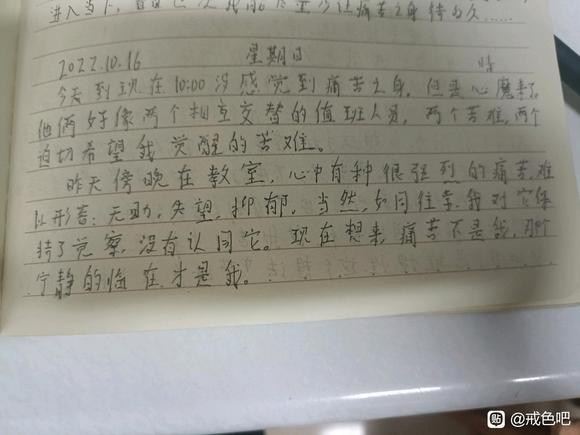 进入当下,
2022.10.16 星期日 晴
今天到现在10:00没感觉到痛苦之身,但是心魔来了,
他俩好像两个相互交替的值班人员,两个苦难,两个
迫切希望我觉醒的苦难。
昨天傍晚在教室,心中有种很强烈的痛苦,难
以形容:无助,失望,抑郁,当然,如同往常,我对它保
持了觉察,没有认同它。现在想来,痛苦不是我,那个
宁静的临在才是我。
贴 @戒色吧